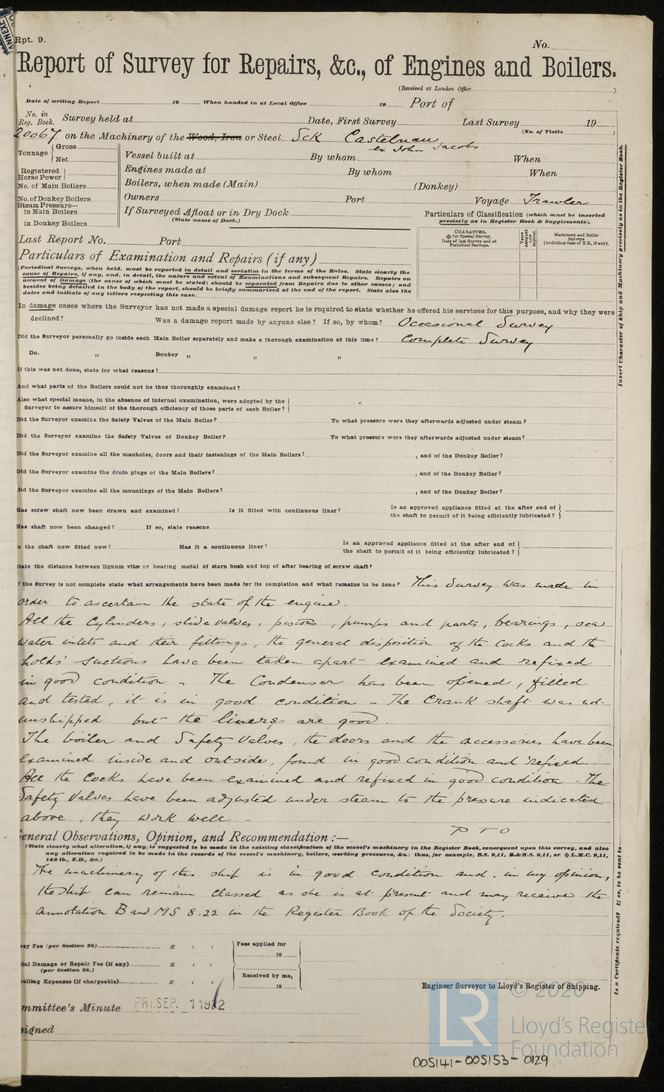 Rpt. 9.
No.
Report of Survey for Repairs, &c., of Engines and Boilers.
(Received at London Office
Date of writing Report 19 When handed in at Local Office 19 Port of
No. in Reg. Book. Survey held at Date, First Survey Last Survey 19
(No. of Visits
20067 on the Machinery of the Wood, Iron or Steel. Sck Castelnau
ex John Jacobs
Tonnage Gross
Net
Vessel built at By whom When
Engines made at By whom When
Registered Horse Power
No. of Main Boilers
Boilers, when made (Main) (Donkey)
No. of Donkey Boilers
Owners Port Voyage Trawler
Steam Pressure—
in Main Boilers
in Donkey Boilers
If Surveyed Afloat or in Dry Dock
(State name of Dock.)
Particulars of Classification (which must be inserted precisely as in Register Book & Supplements).
Last Report No. Port
Particulars of Examination and Repairs (if any)
(Periodical Surveys, when held, must be reported in detail and seriatim in the terms of the Rules. State clearly the
cause of Repairs, if any, and, in detail, the nature and extent of Examinations and subsequent Repairs. Repairs on
account of Damage (the cause of which must be stated) should be separated from Repairs due to other causes; and
besides being detailed in the body of the report, should be briefly summarized at the end of the report. State also the
dates and initials of any letters respecting this case.
CHARACTER.
Machinery and Boiler Surveys
(including date of N.B., if any).
Insert Character of Ship and Machinery precisely as in the Register Book.
In damage cases where the Surveyor has not made a special damage report he is required to state whether he offered his services for this purpose, and why they were
declined? Was a damage report made by anyone else? If so, by whom? Occasional Survey
Did the Surveyor personally go inside each Main Boiler separately and make a thorough examination at this time? Complete Survey
Do. „ Donkey „ „ „
If this was not done, state for what reasons?
And what parts of the Boilers could not be thus thoroughly examined?
Also what special means, in the absence of internal examination, were adopted by the
Surveyor to assure himself of the thorough efficiency of those parts of each Boiler?
Did the Surveyor examine the Safety Valves of the Main Boiler? To what pressure were they afterwards adjusted under steam?
Did the Surveyor examine the Safety Valves of Donkey Boiler? To what pressure were they afterwards adjusted under steam?
Did the Surveyor examine all the manholes, doors and their fastenings of the Main Boilers? , and of the Donkey Boiler?
Did the Surveyor examine the drain plugs of the Main Boilers? , and of the Donkey Boiler?
Did the Surveyor examine all the mountings of the Main Boilers? , and of the Donkey Boiler?
Has screw shaft now been drawn and examined? Is it fitted with continuous liner? Is an approved appliance fitted at the after end of
the shaft to permit of it being efficiently lubricated?
Has shaft now been changed? If so, state reasons
Is the shaft now fitted new? Has it a continuous liner? Is an approved appliance fitted at the after end of
the shaft to permit of it being efficiently lubricated?
State the distance between lignum vitæ or bearing metal of stern bush and top of after bearing of screw shaft?
If the Survey is not complete state what arrangements have been made for its completion and what remains to be done? This Survey was made in
order to ascertain the state of the engine.
All the Cylinders, slide valves, pistons, pumps and parts, bearings, sea
water inlets and their fittings, the general disposition of the Cocks and the
holds' suctions have been taken apart examined and refixed
in good condition - The Condenser has been opened, filled
and tested, it is in good condition - The Crank shaft was
unshipped but the liners are good.
The boiler and Safety Valves, the doors and the accessories have been
examined inside and outside, found in good condition and refixed.
All the Cocks have been examined and refixed in good condition - The
Safety Valves have been adjusted under steam to the pressure indicated
above, they work well -
P T O
General Observations, Opinion, and Recommendation :—
(State clearly what alteration, if any, is suggested to be made in the existing classification of the vessel's machinery in the Register Book, consequent upon this survey, and also
any alteration required to be made in the records of the vessel's machinery, boilers, working pressures, &c.: thus, for example, B.S. 9,11, B.&M.S. 9,11, or L.M.C. 9,11,
140 lb., F.D., &c.)
The machinery of this ship is in good condition and, in my opinion,
the ship can remain classed as she is at present and may receive the
annotation B and MS 8.22 in the Register Book of the Society.
Survey Fee (per Section 28) £ : :
Special Damage or Repair Fee (if any) £ : :
(per Section 28.)
Travelling Expenses (if chargeable) £ : :
Fees applied for
19
Received by me,
19
Engineer Surveyor to Lloyd's Register of Shipping.
Committee's Minute FRI. SEP. 1 1922
Assigned
Is a Certificate required? If so, to be sent to
© 2020
LR
Lloyd's Register
Foundation
005141-005153-0129